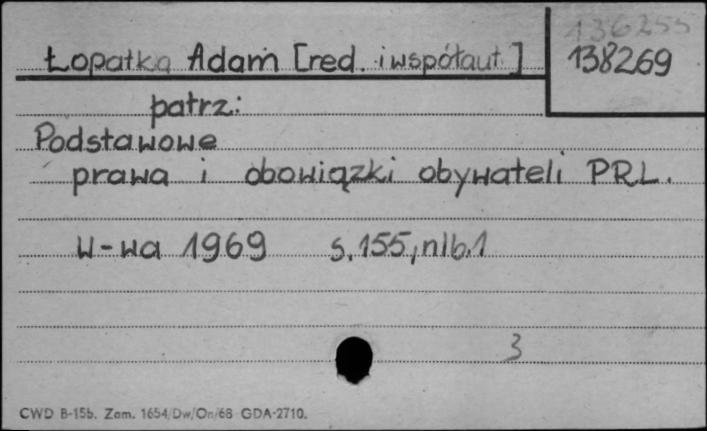 136255
Łopatka Adam [red. i współaut.]
138269
patrz:
Podstawowe
prawa i obowiązki obywateli PRL.
W-wa 1969 s. 155, nlb. 1
3
CWD B-15b. Zam. 1654/Dw/On/68 GDA-2710.